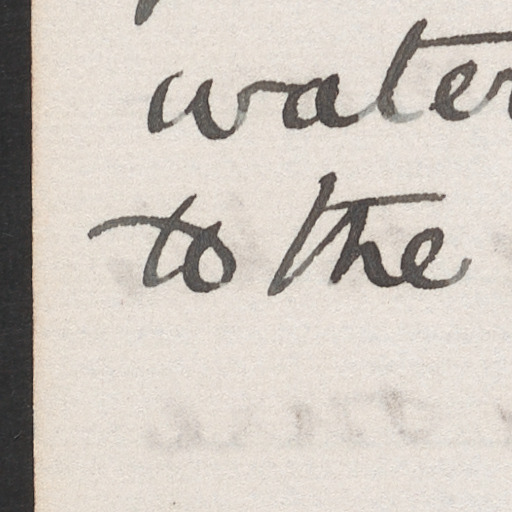 water
to the